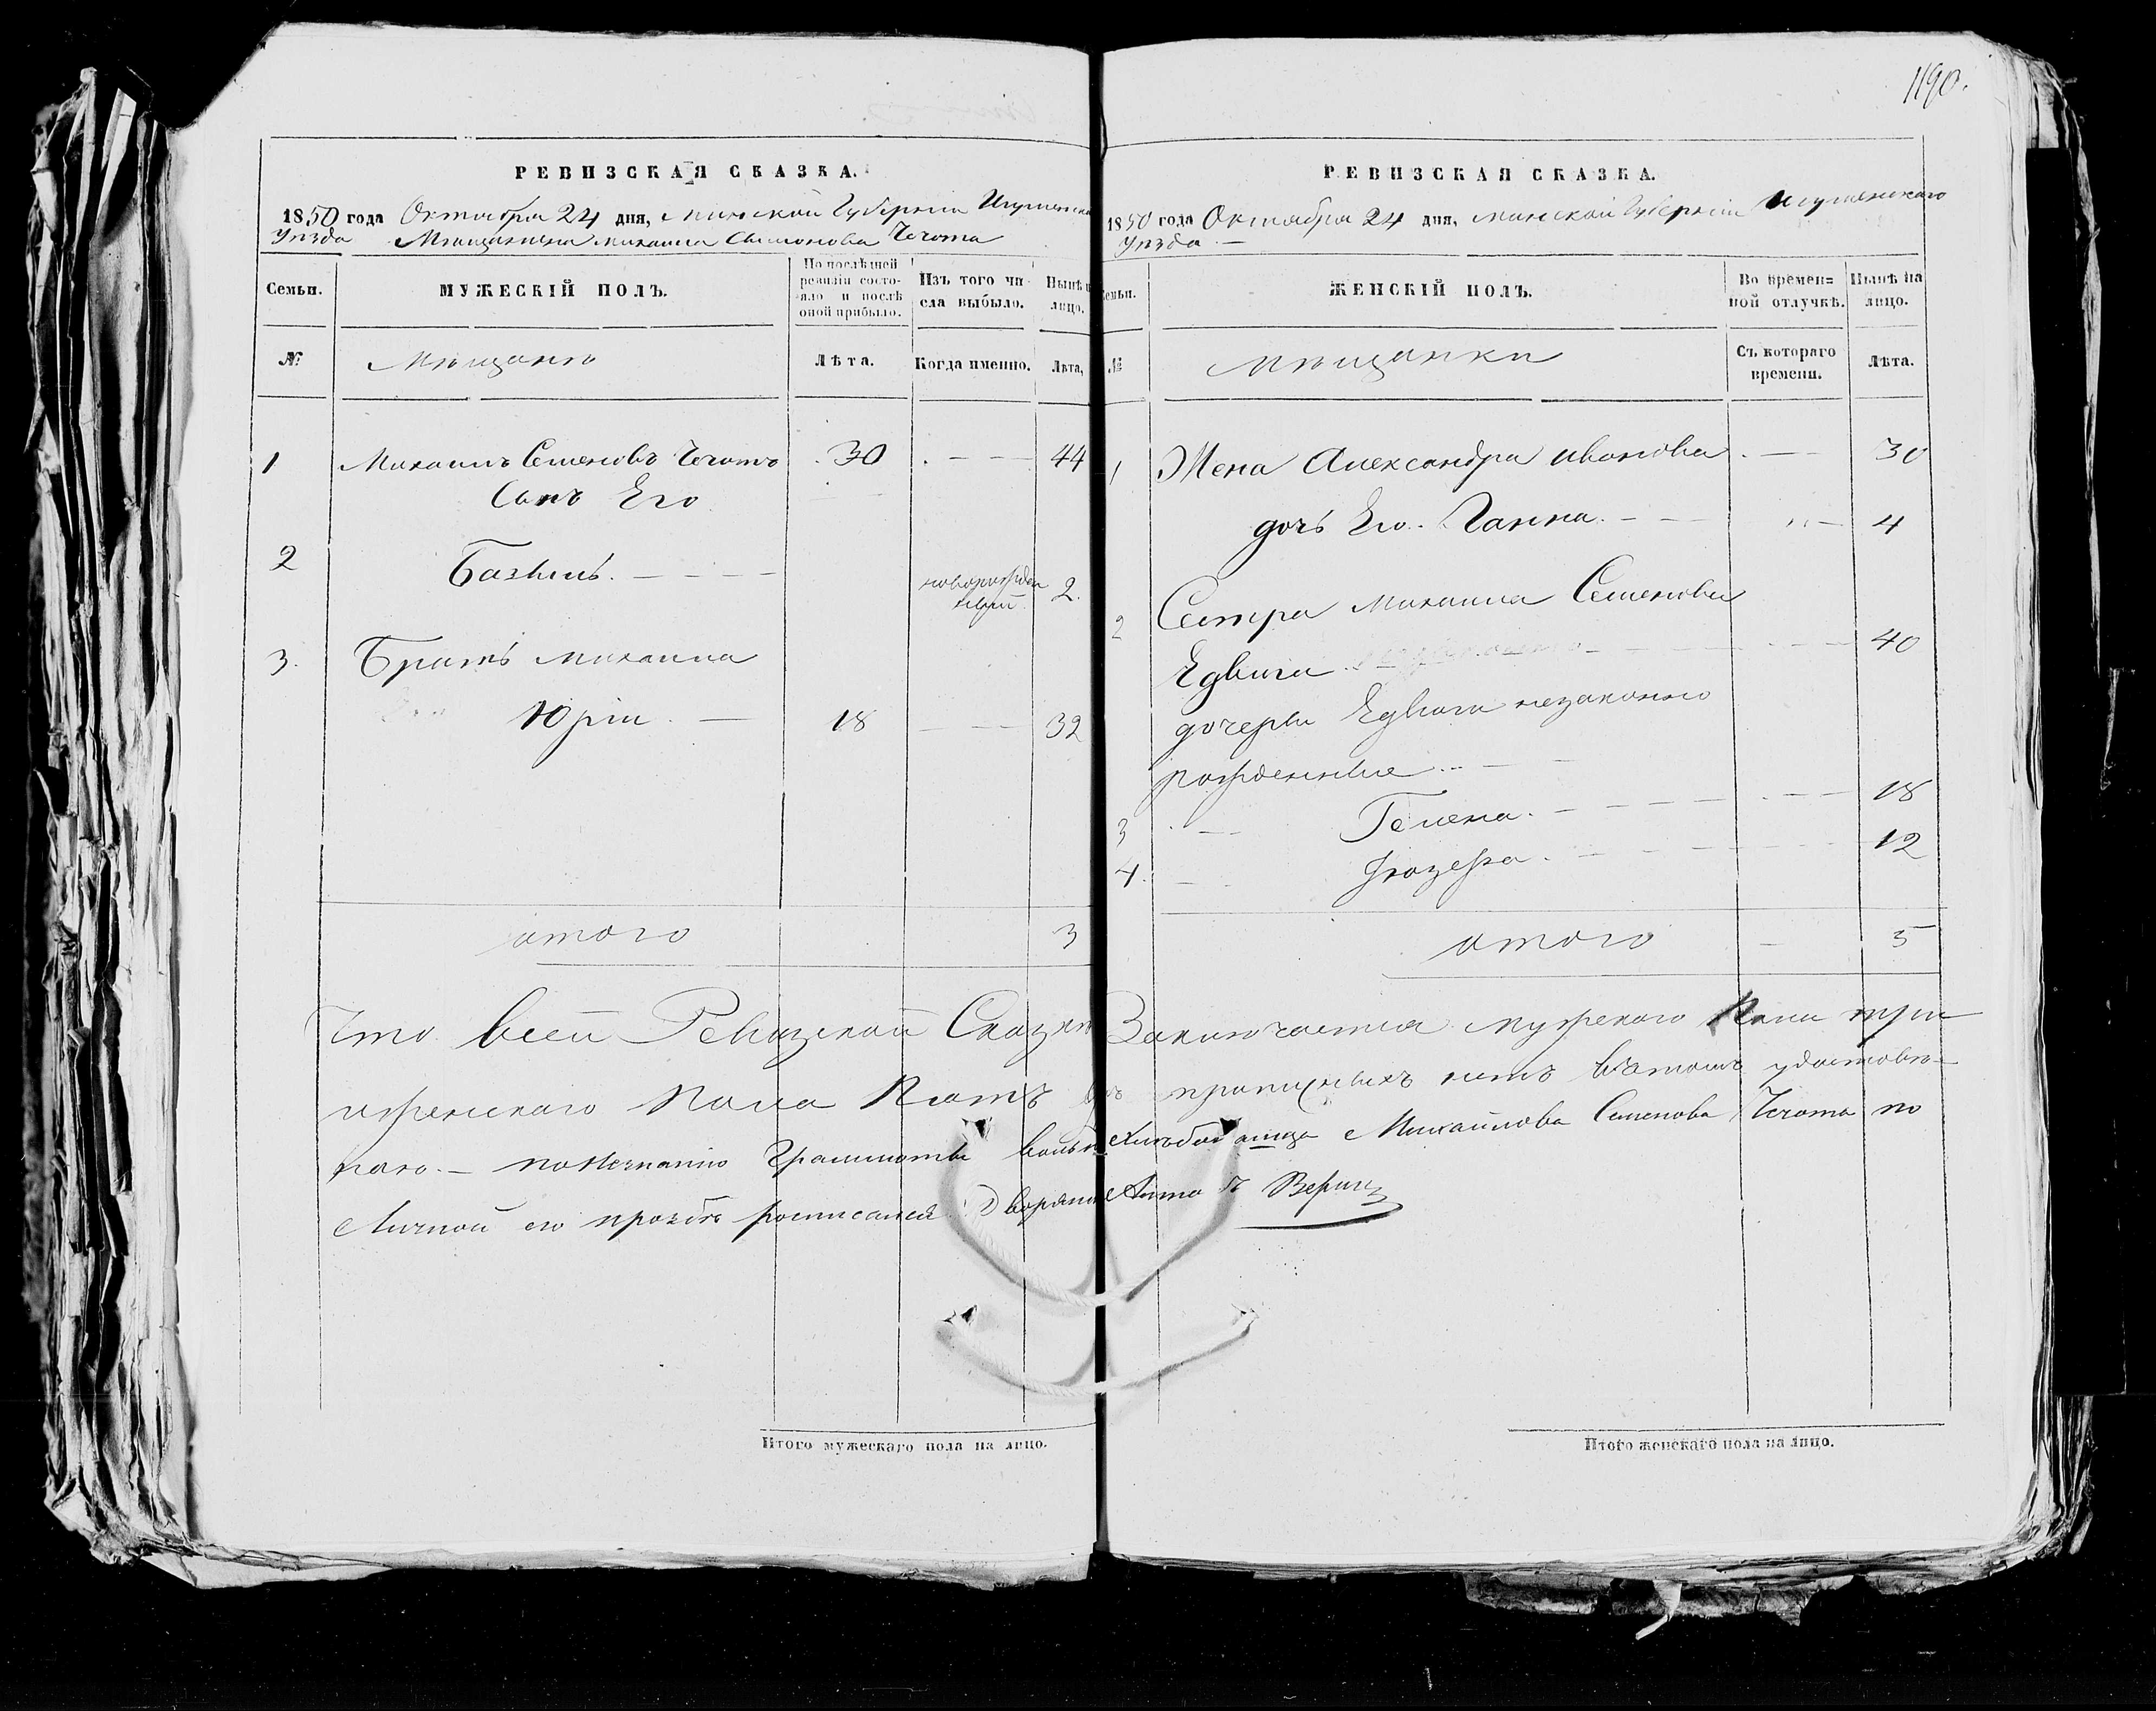 1190.
РЕВИЗСКАЯ СКАЗКА.
1850 года Октября 24 дня, Минской Губернiи Игуменска
Уѣзда Мѣщанина Михаила Симонова Чечота
Семьи.
МУЖЕСКIЙ ПОЛЪ.
По послѣдней ревизiи состояло и послѣ оной прибыло.
Изъ того числа выбыло.
Нынѣ на лицо.
№
Мѣщанъ
Лѣта.
Когда именно.
Лѣта,
1 Михаилъ Семеновъ Чечотъ 30 44
Сынъ Его
2 Базыль. новорожденный 2.
3. Братъ Михаила
Юрiи 18 32
итого 3
РЕВИЗСКАЯ СКАЗКА.
1850 года Октября 24 дня, Минской Губернiи Игуменскаго
Уѣзда
Семьи.
ЖЕНСКIЙ ПОЛЪ.
Во временной отлучкѣ.
Нынѣ на лицо.
№
Мѣщанки
Съ котораго времени.
Лѣта.
1 Жена Александра Иванова 30
дочь Его Ганна 4
2 Сестра Михаила Семенова
Едвига 40
дочери Едвиги незаконно
рожденные
3 Гелена 18
4. Юзефа 12
итого 5
Что всей Ревизской Сказкѣ Заключается мужеского Пола три
женского Пола Пять прописныхъ нетъ въ томъ удостовѣ-
ряю. — По Незнанiю Грамоты Михайлова Семенова Чечота по
Личной его прозбѣ росписался Дворянинъ
Итого мужескаго пола на лицо.
Итого женскаго пола на лицо.